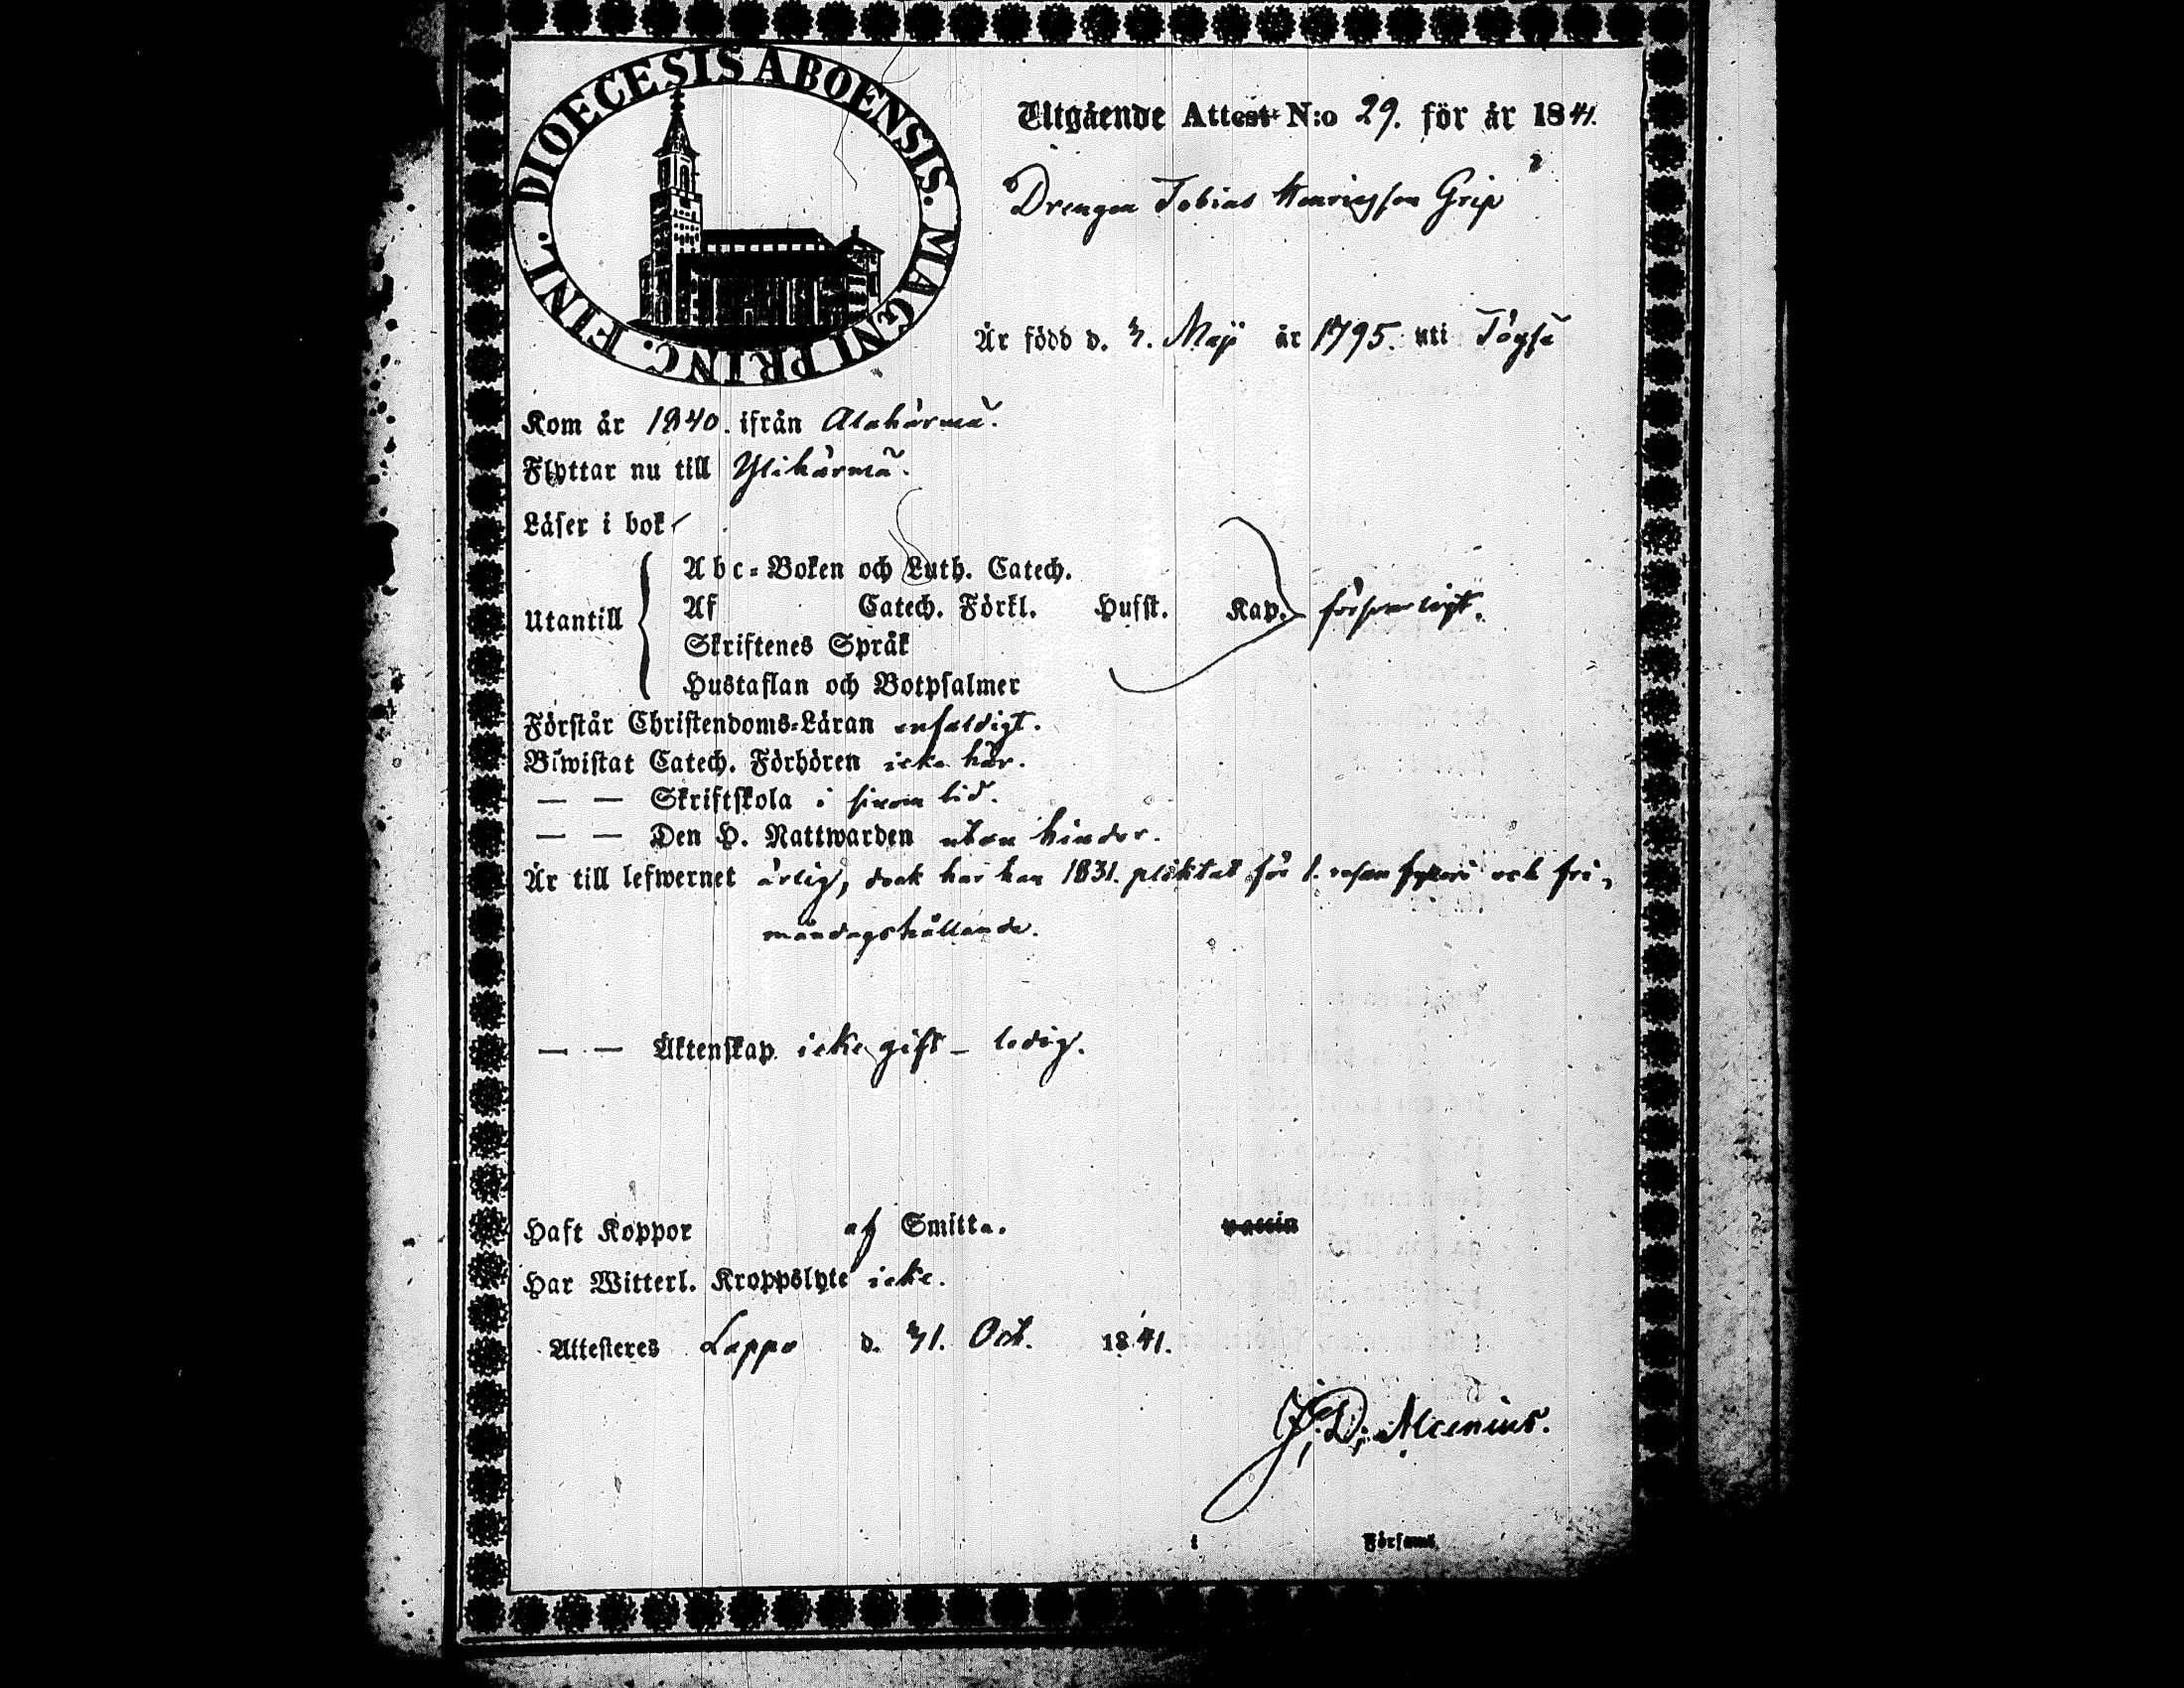 DIOECESIS ABOENSIS. MAGNI PRINC. FINL.
Utgående Attest N:o 29. för år 1841.
Drengen Tobias Henricsson Grip
Är född d. Maji år 1795. uti Töysä
Kom år 1840. ifrån Alahärmä.
Flyttar nu till Ylihärmä.
Läser i bok
Utantill
Abc-Boken och Luth. Catech.
Af Catech. Förkl. Husst. Kap. försvarligt.
Skriftenes Språk
Hustaflan och Botpsalmer
Förstår Christendoms-Läran enfaldigt.
Biwistat Catech. Förhören icke här.
— — Skriftskola i sinom tid.
— — Den H. Nattwarden utan hinder.
Är till lefwernet ärlig, dock har han 1831. pliktat för 1. resan fylleri och fri-
måndagshållande.
— — Äktenskap icke gift – ledig.
Haft Koppor af Smitta. vaccin
Har Witterl. Kroppslyte icke.
Attesteres Lappo d. Oct. 1841.
J. D. Alcenius.
i Församl.